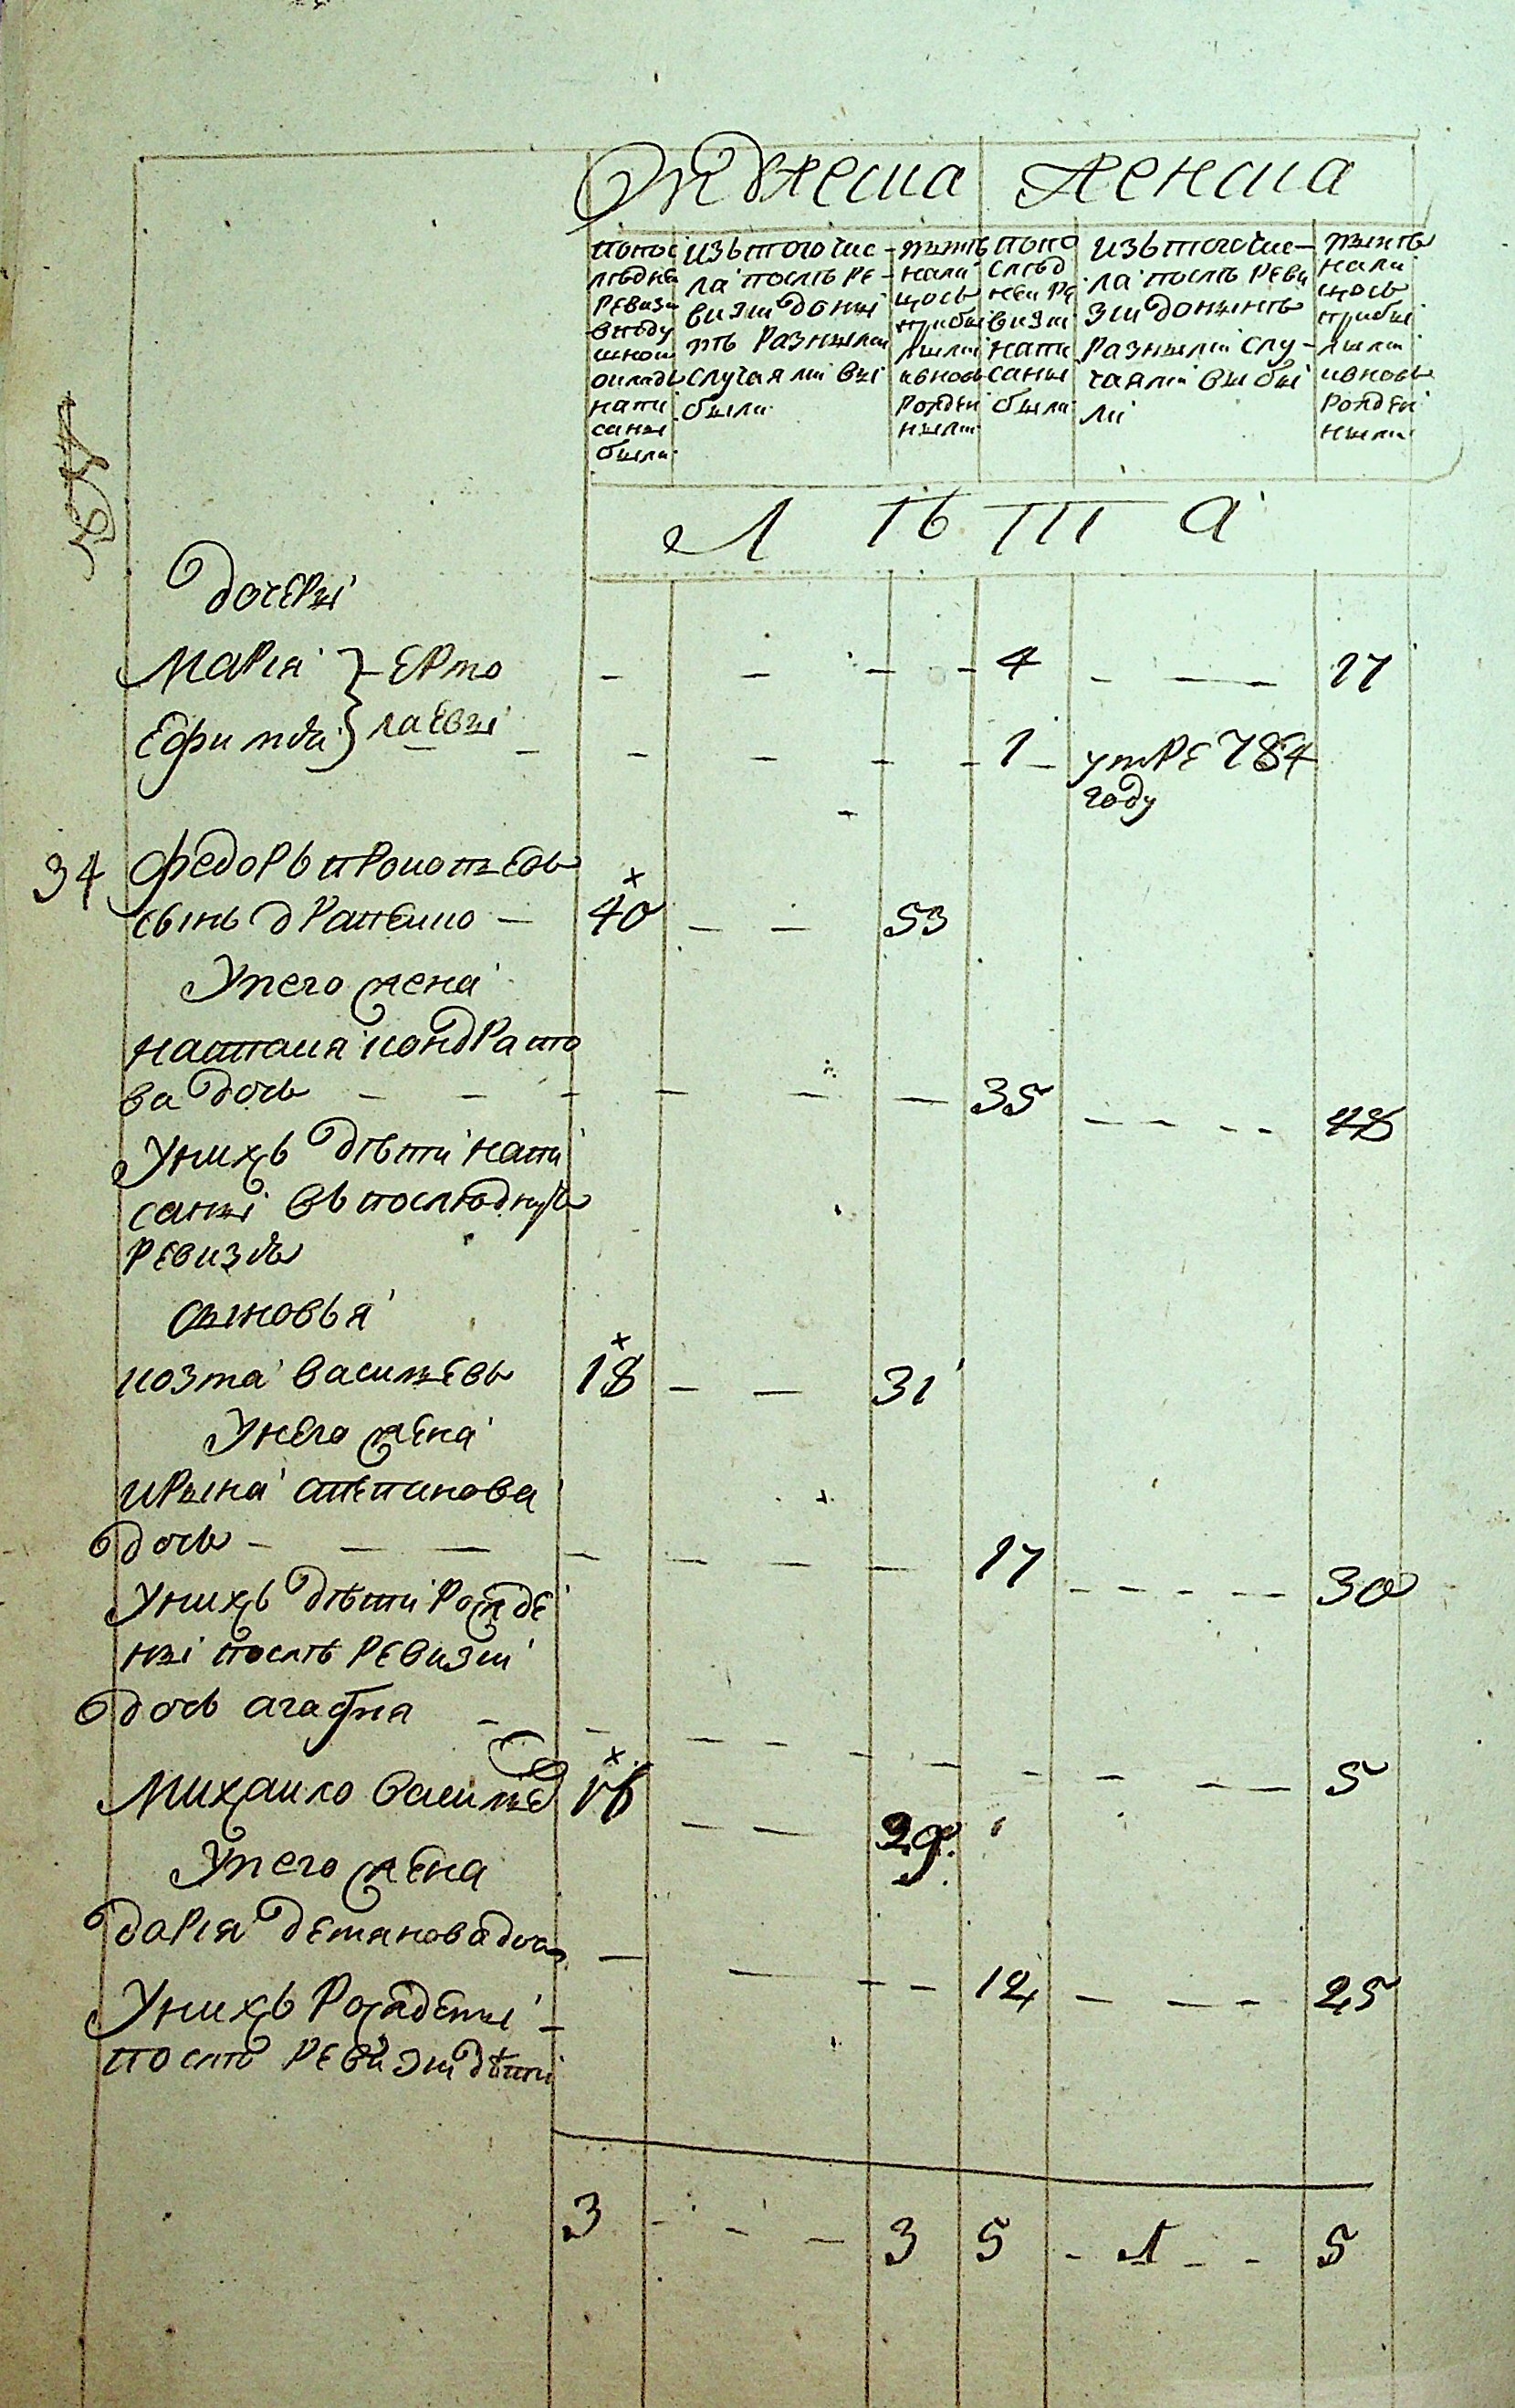 Мужеска женска
попос
лѣдне
ревизи
вподу
шном
окладѣ
напи
саны
были
изь того чис-
ла послѣ ре-
визіи доны
нѣ разными
случаями вы
были
нынѣ
нали
цось
прибы
лыми
ивновь
рожден
ными
попо
слѣд
неи ре
визіи
напи
саны
были
изь того чис-
ла послѣ реви
зіи донынѣ
разными слу-
чаями выбы
ли
нынѣ
нали
цось
прибы
лыми
ивновь
рожден
ными
Лѣта
дочеры
Марія } Ермо 4 17
Ефимья } лаевы 1 умре 784
году
34 Федорь Прокопьевь
сынь драпеико 40 53
Унего жена
настасия кондрато
ва дочь 35 48
Унихь дѣти напи
саны вь последную
ревизію
сыновья
козма васильевь 18 31
Унего жена
ирына степанова
дочь 17 30
Унихь дѣти рожде
ны послѣ ревизіи
дочь агафия 5
Михаило василье 16 29
Унего жена
дарія демянова дочь 12 25
Унихь рождены
послѣ ревизіи дѣти
3 3 5 1 5